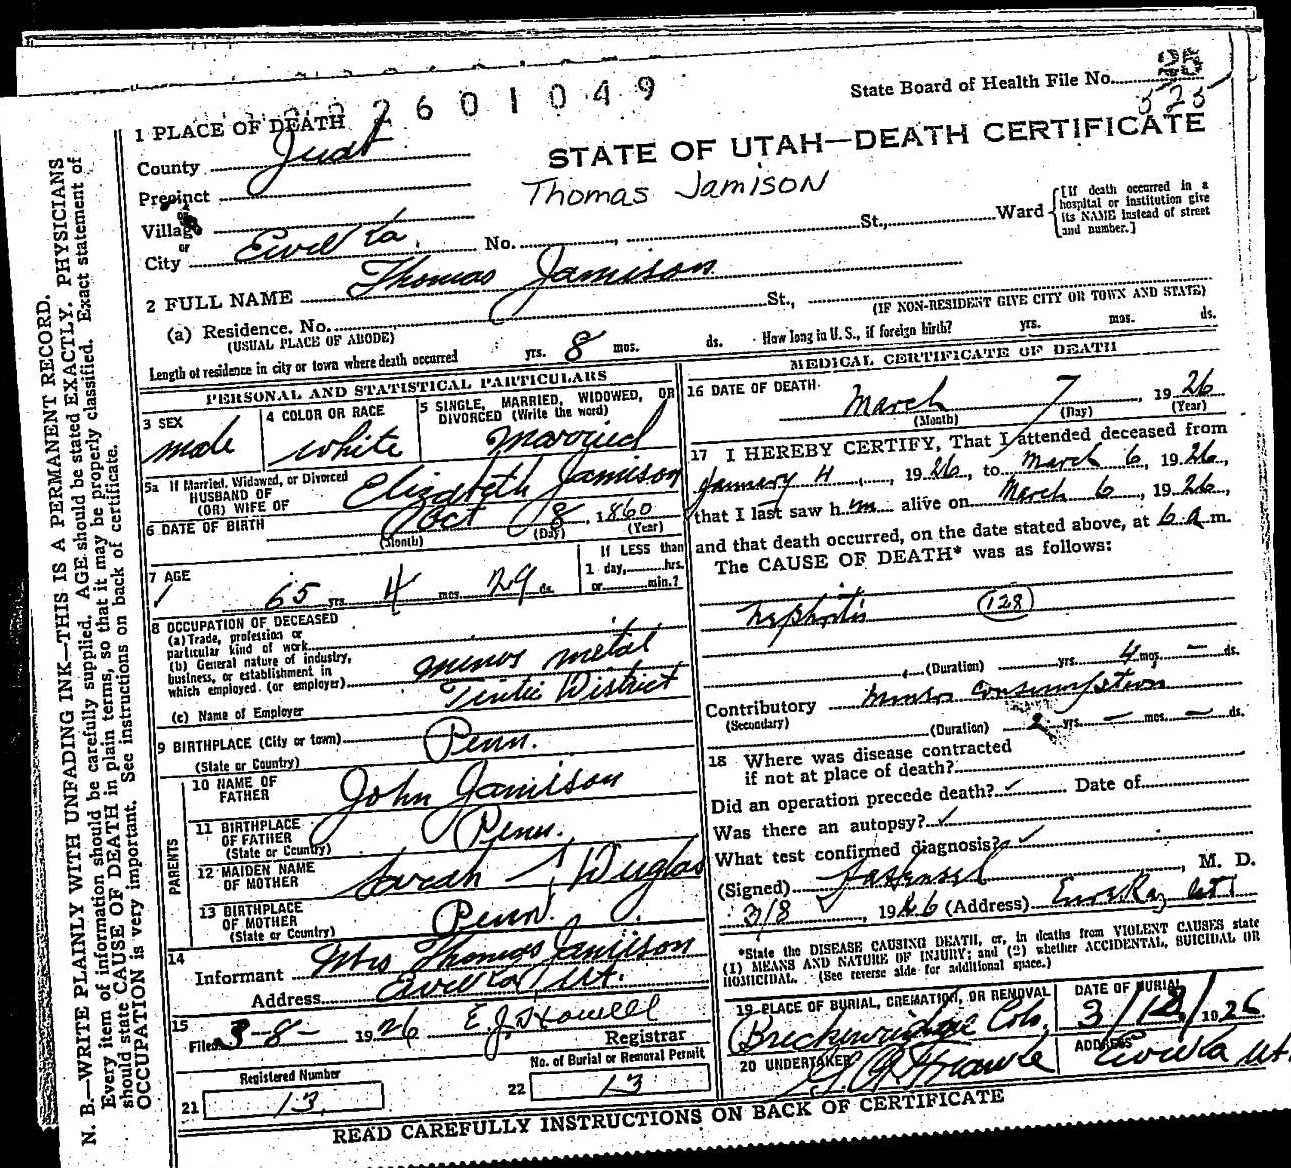 2601049
State Board of Health File No. 25
525
1 PLACE OF DEATH
County Juab
STATE OF UTAH—DEATH CERTIFICATE
Precinct
Thomas Jamison
Village
or
City Eureka, No. , St., Ward
[If death occurred in a hospital or institution give its NAME instead of street and number.]
2 FULL NAME Thomas Jamison
(a) Residence. No. St.,
(USUAL PLACE OF ABODE) (IF NON-RESIDENT GIVE CITY OR TOWN AND STATE)
Length of residence in city or town where death occurred yrs. 8 mos. ds. How long in U.S., if foreign birth? yrs. mos. ds.
PERSONAL AND STATISTICAL PARTICULARS
3 SEX male
4 COLOR OR RACE white
5 SINGLE, MARRIED, WIDOWED, OR DIVORCED (Write the word) Married
5a If Married, Widowed, or Divorced
HUSBAND OF
(OR) WIFE OF Elizabeth Jamison
6 DATE OF BIRTH Oct 8, 1860
(Month) (Day) (Year)
7 AGE 65 yrs. 4 mos. 29 ds.
If LESS than
1 day, hrs.
or min.?
8 OCCUPATION OF DECEASED
(a) Trade, profession or
particular kind of work
(b) General nature of industry,
business, or establishment in
which employed. (or employer) metal
Tintic District
(c) Name of Employer
9 BIRTHPLACE (City or town)
(State or Country) Penn.
PARENTS
10 NAME OF
FATHER John Jamison
11 BIRTHPLACE
OF FATHER
(State or Country) Penn.
12 MAIDEN NAME
OF MOTHER Sarah Duglas
13 BIRTHPLACE
OF MOTHER
(State or Country) Penn.
14
Informant Mrs Thomas Jamison
Address Eureka, Ut.
15
Filed 3-8- 1926 E. J. Howell
Registrar
Registered Number
21 13
No. of Burial or Removal Permit
22 13
MEDICAL CERTIFICATE OF DEATH
16 DATE OF DEATH
March 7, 1926
(Month) (Day) (Year)
17 I HEREBY CERTIFY, That I attended deceased from
January 4, 1926, to March 6, 1926,
that I last saw him alive on March 6, 1926,
and that death occurred, on the date stated above, at 6 a m.
The CAUSE OF DEATH* was as follows:
Nephritis 128
(Duration) yrs. 4 mos. — ds.
Contributory miners consumption
(Secondary)
(Duration) 2 yrs. — mos. — ds.
18 Where was disease contracted
if not at place of death?
Did an operation precede death? ✓ Date of
Was there an autopsy? ✓
What test confirmed diagnosis? ✓
(Signed) , M. D.
3/8, 1926 (Address) Eureka, Ut
*State the DISEASE CAUSING DEATH, or, in deaths from VIOLENT CAUSES state
(1) MEANS AND NATURE OF INJURY; and (2) whether ACCIDENTAL, SUICIDAL OR
HOMICIDAL. (See reverse side for additional space.)
19 PLACE OF BURIAL, CREMATION, OR REMOVAL
Breckenridge Colo.
DATE OF BURIAL
3/12/1926
20 UNDERTAKER
ADDRESS
Eureka Ut.
READ CAREFULLY INSTRUCTIONS ON BACK OF CERTIFICATE
N. B.—WRITE PLAINLY WITH UNFADING INK—THIS IS A PERMANENT RECORD.
Every item of information should be carefully supplied. AGE should be stated EXACTLY. PHYSICIANS
should state CAUSE OF DEATH in plain terms, so that it may be properly classified. Exact statement of
OCCUPATION is very important. See instructions on back of certificate.